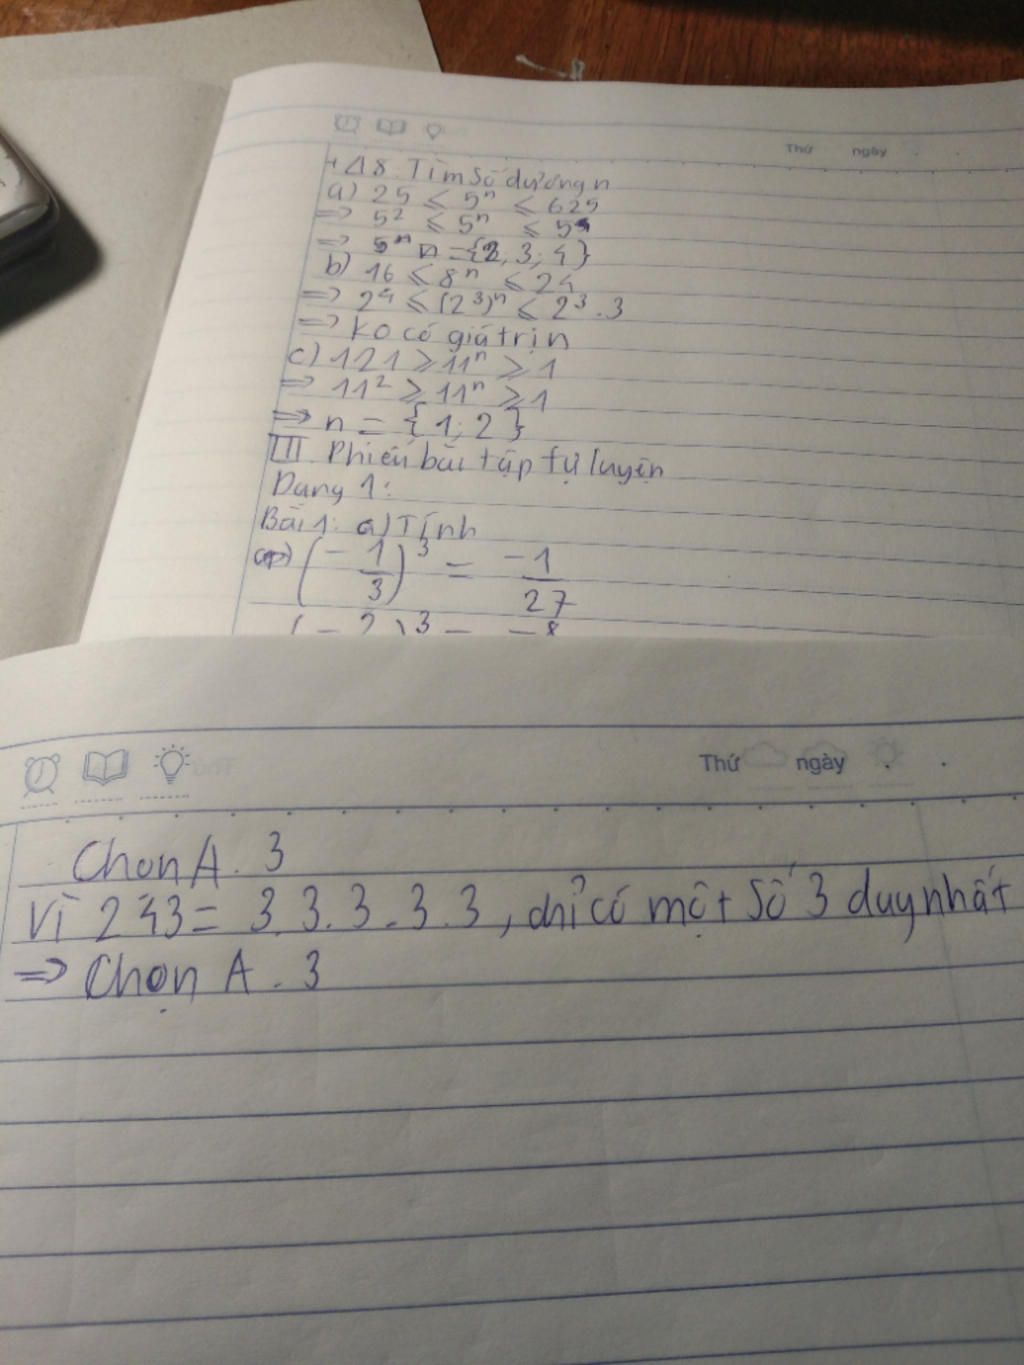 Thứ ngày
+ 18. Tìm số dương n
a) 25 ≤ 5ⁿ ≤ 625
=> 5² ≤ 5ⁿ ≤ 5⁴
=> 5ⁿ n = {2, 3; 4}
b) 16 ≤ 8ⁿ ≤ 24
=> 2⁴ ≤ (2³)ⁿ ≤ 2³.3
=> ko có giá trị n
c) 121 ≥ 11ⁿ ≥ 1
=> 11² ≥ 11ⁿ ≥ 1
=> n = {1; 2}
III. Phiếu bài tập tự luyện
Dạng 1:
Bài 1: a) Tính
(- 1/3)³ = -1/27
(- 2 )³ = -8
Thứ ngày
Chọn A. 3
Vì 243 = 3.3.3.3.3, chỉ có một số 3 duy nhất
=> Chọn A. 3